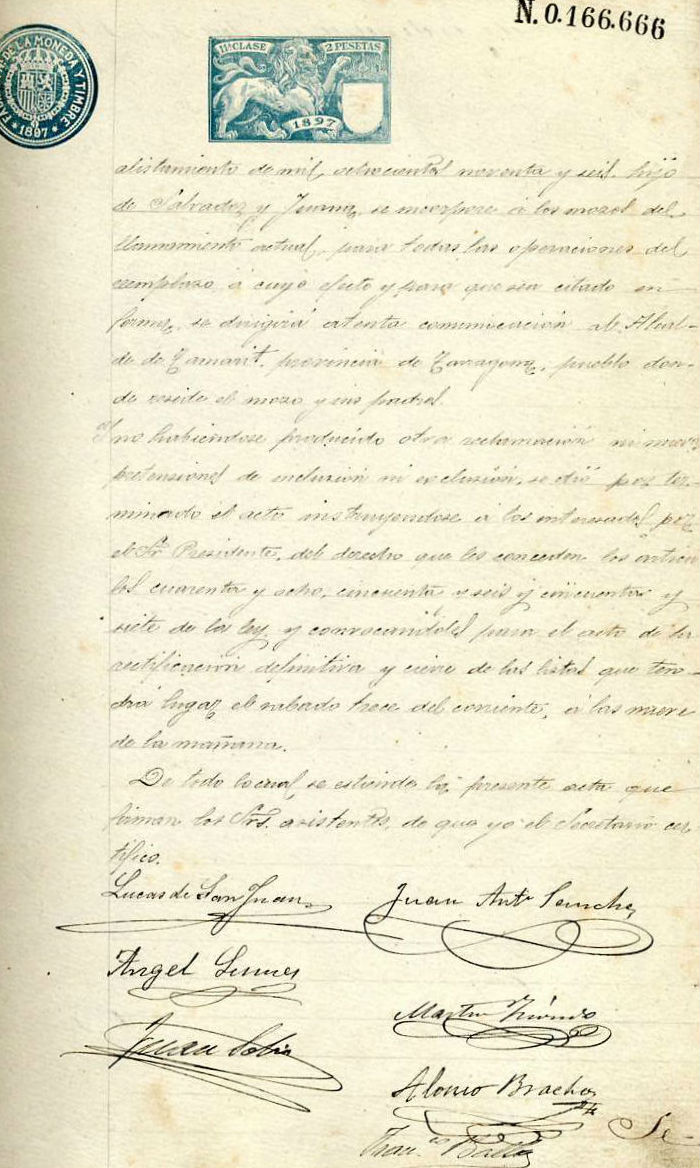 N. 0.166.666
DE LA MONEDA Y TIMBRE
* 1897 *
11ª CLASE
2 PESETAS
1897
alistamiento de mil ochocientos noventa y seis, hijo
de Salvador y Juana, se incorpore á los mozos del
llamamiento actual, para todas las operaciones del
reemplazo, á cuyo efecto y para que sea citado en
forma, se dirigirá atenta comunicación al Alcal-
de de Tamarit, provincia de Tarragona, pueblo don-
de reside el mozo y sus padres.
Y no habiéndose producido otra reclamación ni nuevas
pretensiones de inclusión ni exclusión, se dió por ter-
minado el acto instruyéndose á los interesados por
el Sr. Presidente, del derecho que les conceden los artícu
los cuarenta y ocho, cincuenta y seis y cincuenta y
siete de la ley, y convocandoles para el acto de la
rectificación definitiva y cierre de las listas que ten-
drá lugar el sabado trece del corriente, á las nueve
de la mañana.
De todo lo cual, se estiende la presente acta que
firman los Srs. asistentes, de que yo el Secretario cer
tifico.
Lucas de San Juan
Juan Antº Sanchez
Angel
Martin
Juan
Alonso Bracho
Se-